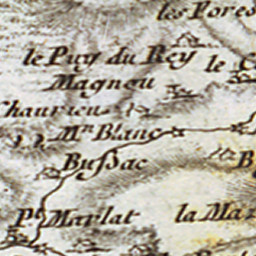 les Fores
le Puy du Rey
le C
Magnou
Chaurieu
Mn. Blanc
Bussac
B
Pt. Marlat
la Ma